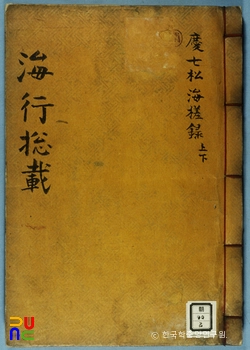 慶七松 海槎録 上下
海行捴載
朝
© 한국학중앙연구원